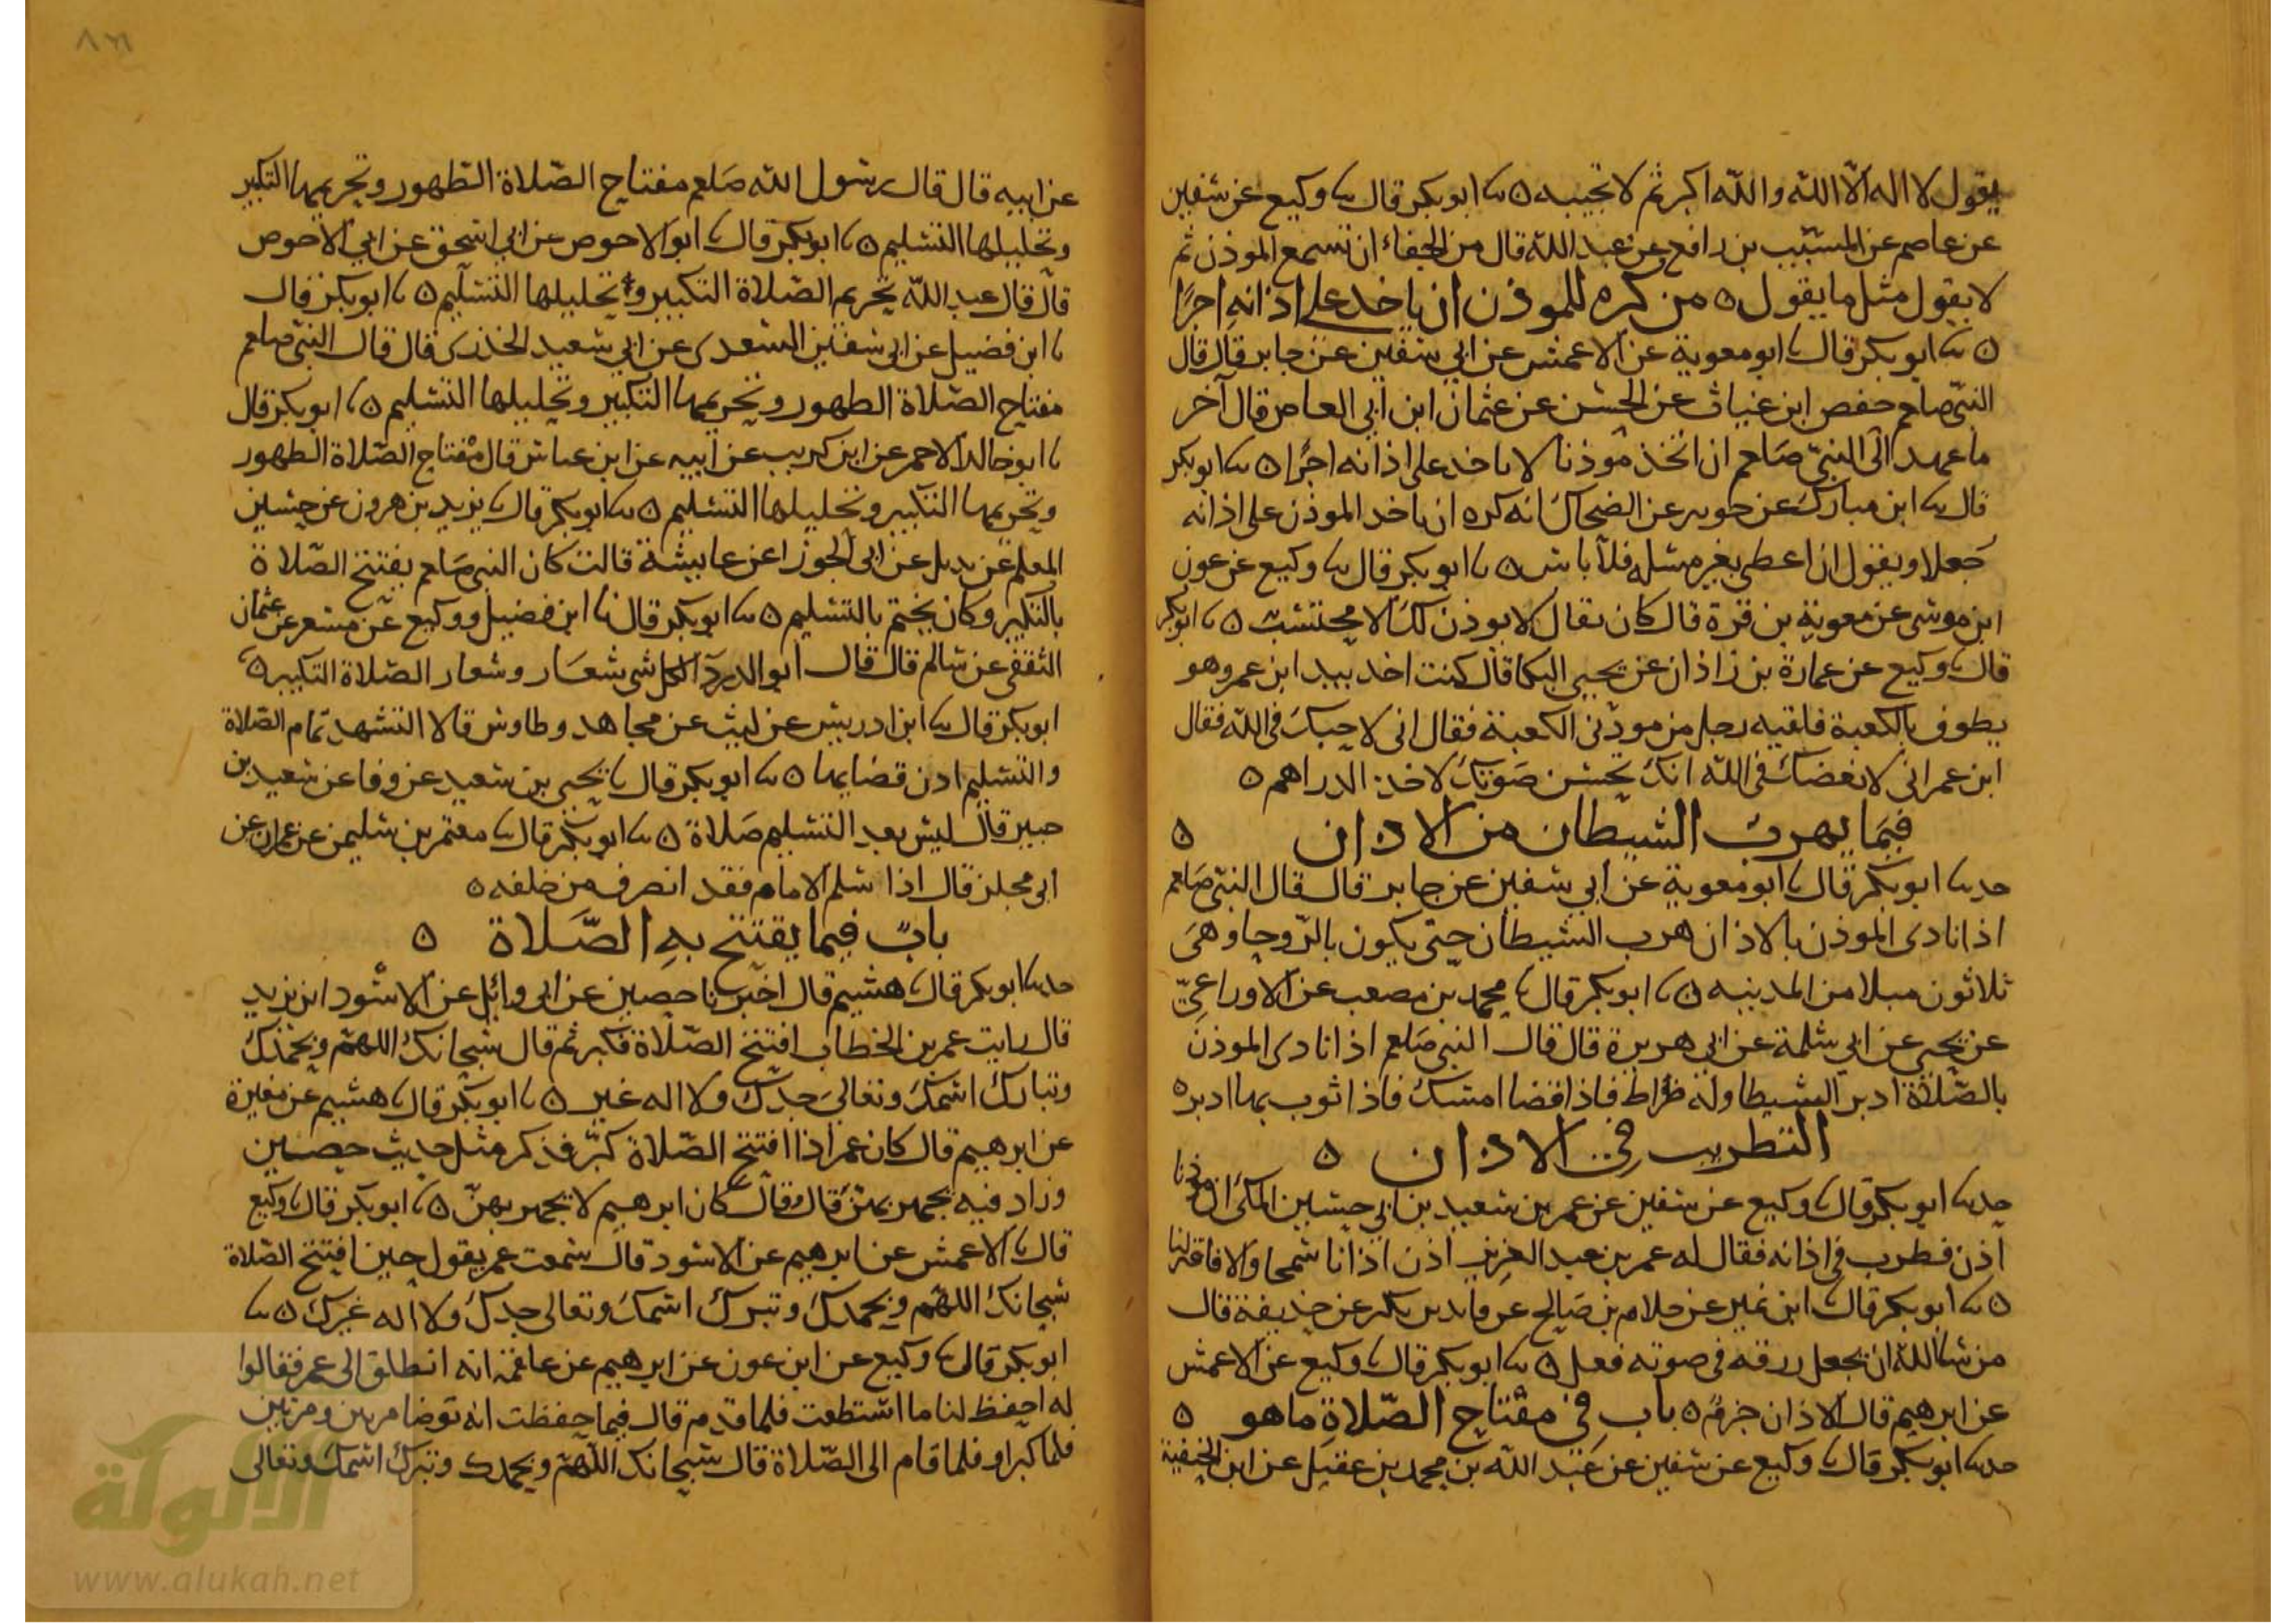 يقول لا اله الا الله والله اكبر ثم لا تجيبه ٥ ثنا ابو بكر قال ثنا وكيع عن سفين
عن عاصم عن المسيب بن رافع عن عبد الله قال من الجفاء ان تسمع الموذن ثم
لا يقول مثل ما يقول ٥ من كره للموذن ان ياخذ على اذانه اجرًا
٥ ثنا ابو بكر قال ثنا ابو معوية عن الاعمش عن ابي سفين عن جابر قال قال
النبي صلعم حفص ابن غياث عن الحسن عن عثمان ابن ابي العاص قال آخر
ما عهد الى النبي صلعم ان اتخذ موذنا لا ياخذ على اذانه اجرًا ٥ ثنا ابو بكر
قال ثنا ابن مبارك عن جويبر عن الضحاك انه كره ان ياخذ الموذن على اذانه
جعلا ويقول ان اعطى بغير مسله فلا باس ٥ ثنا ابو بكر قال ثنا وكيع عن عون
ابن موسى عن معوية بن قرة قال كان يقال لا يوذن لك الا محتسب ٥ ثنا ابو بكر
قال ثنا وكيع عن عمارة بن زاذان عن يحيى البكا قال كنت اخذ بيد ابن عمر وهو
يطوف بالكعبة فلقيه رجل من موذني الكعبة فقال اني لاحبك في الله فقال
ابن عمر اني لابغضك في الله انك تحسن صوتك لاخذ الدراهم ٥
فيما يهرب الشيطان من الاذان ٥
حدثنا ابو بكر قال ثنا ابو معوية عن ابي سفين عن جابر قال قال النبي صلعم
اذا نادى الموذن بالاذان هرب الشيطان حتى يكون بالروحا وهى
ثلاثون ميلا من المدينه ٥ ثنا ابو بكر قال ثنا محمد بن مصعب عن الاوزاعي
عن يحيى عن ابي سلمة عن ابي هريرة قال قال النبي صلعم اذا نادى الموذن
بالصلاة ادبر الشيطا وله ظراط فاذا قضا امسك فاذا ثوب بها ادبر ٥
التطريب في الاذان ٥
حدثنا ابو بكر قال ثنا وكيع عن سفين عن عمر بن سعيد بن ابي حسين المكي ان موذنا
اذن فطرب في اذانه فقال له عمر بن عبد العزيز اذن اذانا سمحا والا فاقه لنا
٥ ثنا ابو بكر قال ثنا ابن نمير عن حلام بن صالح عن فايد بن بكر عن حذيفة قال
من شا الله ان يجعل رزقه في صوته فعل ٥ ثنا ابو بكر قال ثنا وكيع عن الاعمش
عن ابرهيم قال الاذان جزم ٥ باب في مفتاح الصلاة ما هو ٥
حدثنا ابو بكر قال ثنا وكيع عن سفين عن عبد الله بن محمد بن عقيل عن ابن الحنفية
٨٦
عن ابيه قال قال رسول الله صلعم مفتاح الصلاة الطهور وتحريمها التكبير
وتحليلها التسليم ٥ ثنا ابو بكر قال ثنا ابو الاحوص عن ابي اسحق عن ابي الاحوص
قال قال عبد الله تحريم الصلاة التكبير و تحليلها التسليم ٥ ثنا ابو بكر قال
ثنا ابن فضيل عن ابي سفين السعدى عن ابي سعيد الخدرى قال قال النبي صلعم
مفتاح الصلاة الطهور وتحريمها التكبير وتحليلها التسليم ٥ ثنا ابو بكر قال
ثنا ابو خالد الاحمر عن ابن كريب عن ابيه عن ابن عباس قال مفتاح الصلاة الطهور
وتحريمها التكبير وتحليلها التسليم ٥ ثنا ابو بكر قال ثنا يزيد بن هرون عن حسين
المعلم عن بديل عن ابي الجوزا عن عايشة قالت كان النبي صلعم يفتتح الصلاة
بالتكبير وكان يختم بالتسليم ٥ ثنا ابو بكر قال ثنا ابن فضيل ووكيع عن مسعر عن عثمان
الثقفي عن سالم قال قال ابو الدردآ لكل شى شعار وشعار الصلاة التكبير ٥ ثنا
ابو بكر قال ثنا ابن ادريس عن ليث عن مجاهد وطاوس قالا التشهد تمام الصلاة
والتسليم اذن قضايها ٥ ثنا ابو بكر قال ثنا يحيى بن سعيد عن وفا عن سعيد بن
جبير قال ليس بعد التسليم صلاة ٥ ثنا ابو بكر قال ثنا معتمر بن سليمن عن عمران عن
ابي مجلز قال اذا سلم الامام فقد انصرف من خلفه ٥
باب فيما يفتتح به الصلاة ٥
حدثنا ابو بكر قال ثنا هشيم قال اخبرنا حصين عن ابي وائل عن الاسود ابن يزيد
قال رايت عمر بن الخطاب افتتح الصلاة فكبر ثم قال سبحانك اللهم وبحمدك
وتبارك اسمك وتعالى جدك ولا اله غير ٥ ثنا ابو بكر قال ثنا هشيم عن مغيرة
عن ابرهيم قال كان عمر اذا افتتح الصلاة كبر فذكر مثل حديث حصين
وزاد فيه يجهر بهن قال وقال كان ابرهيم لا يجهر بهن ٥ ثنا ابو بكر قال ثنا وكيع
قال ثنا الاعمش عن ابرهيم عن الاسود قال سمعت عمر يقول حين افتتح الصلاة
سبحانك اللهم وبحمدك وتبرك اسمك وتعالى جدك ولا اله غيرك ٥ ثنا
ابو بكر قال ثنا وكيع عن ابن عون عن ابرهيم عن علقمة انه انطلق الى عمر فقالوا
له احفظ لنا ما استطعت فلما قدم قال فيما حفظت انه توضا مرتين ومرتين
فلما كبر او فلما قام الى الصلاة قال سبحانك اللهم وبحمدك وتبرك اسمك وتعالى
الالوكة
www.alukah.net